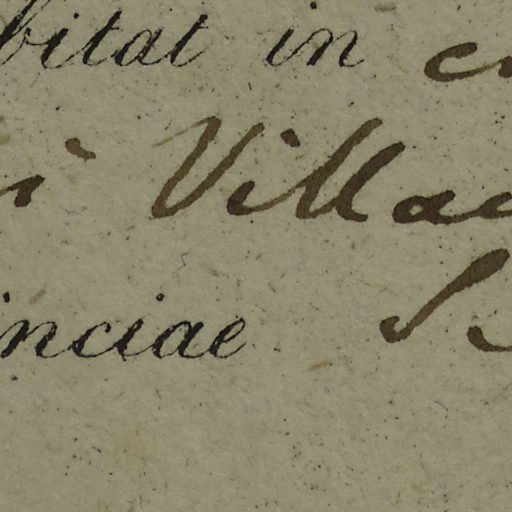 bitat in c
i Villa
inciae S